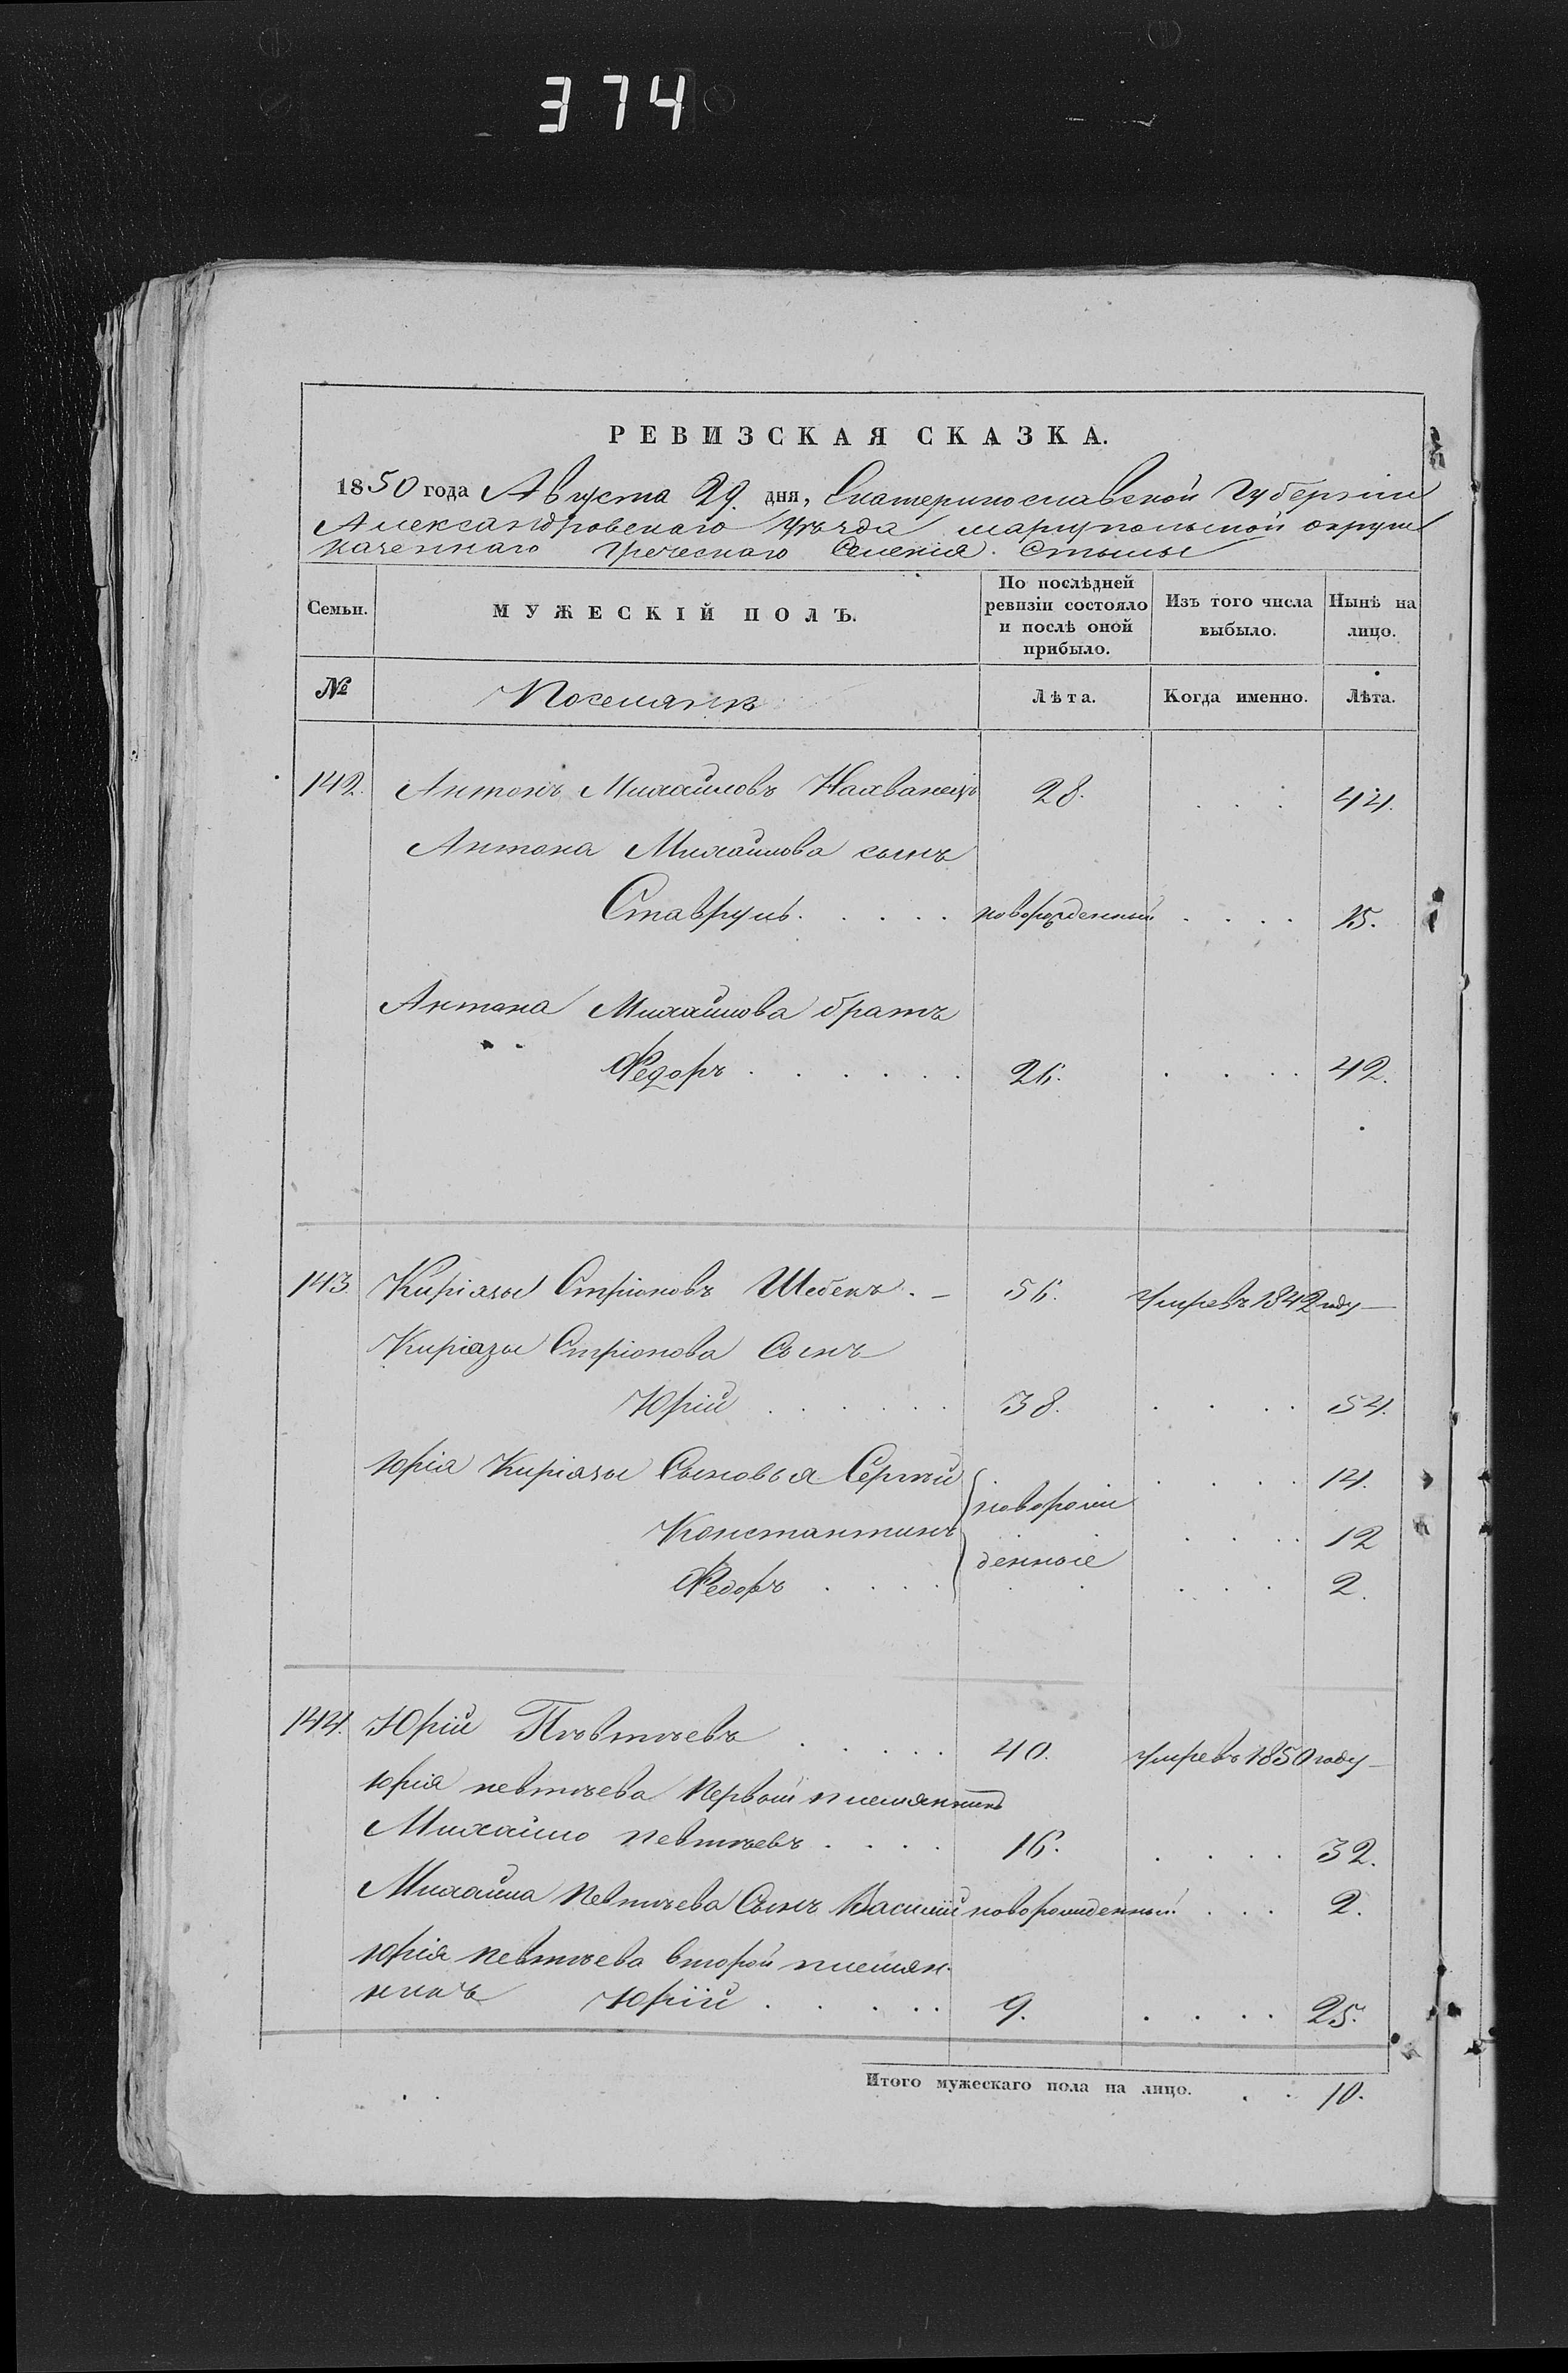 374
РЕВИЗСКАЯ СКАЗКА.
1850 года Августа 29. дня, Екатеринославской Губерніи
Александровскаго Уѣзда мариупольской округи
казеннаго Греческаго Селенія Стылы
Семьи. МУЖЕСКІЙ ПОЛЪ. По послѣдней ревизіи состояло и послѣ оной прибыло. Изъ того числа выбыло. Нынѣ на лицо.
№ Поселянъ Лѣта. Когда именно. Лѣта.
142. Антонъ Михайловъ Нахванецъ 28. . . . 44.
Антона Михайлова сынъ
Ставруль . . . . . новорожденный . . . . 15.
Антона Михайлова братъ
Федоръ . . . . . . 26. . . . . 42.
143. Киріазы Стріоновъ Шебекъ . – 56. Умеръ въ 1842 году –
Киріазы Стріонова Сынъ
Юрій . . . . . . 38. . . . . 54.
Юрія Киріазы Сыновья Сергѣй . . . . 14.
новорож
Константинъ . . . . 12
денные
Федоръ . . . . . . . . 2.
144. Юрій Пѣвтчевъ . . . . . 40. Умеръ въ 1850 году –
Юрія певтчева первый племянникъ
Михайло певтчевъ . . . . 16. . . . . 32.
Михайла Певтчева Сынъ Василій новорожденный . . . 2.
Юрія певтчева второй племян-
никъ Юрій . . . . . 9. . . . . 25.
Итого мужескаго пола на лицо. . . 10.